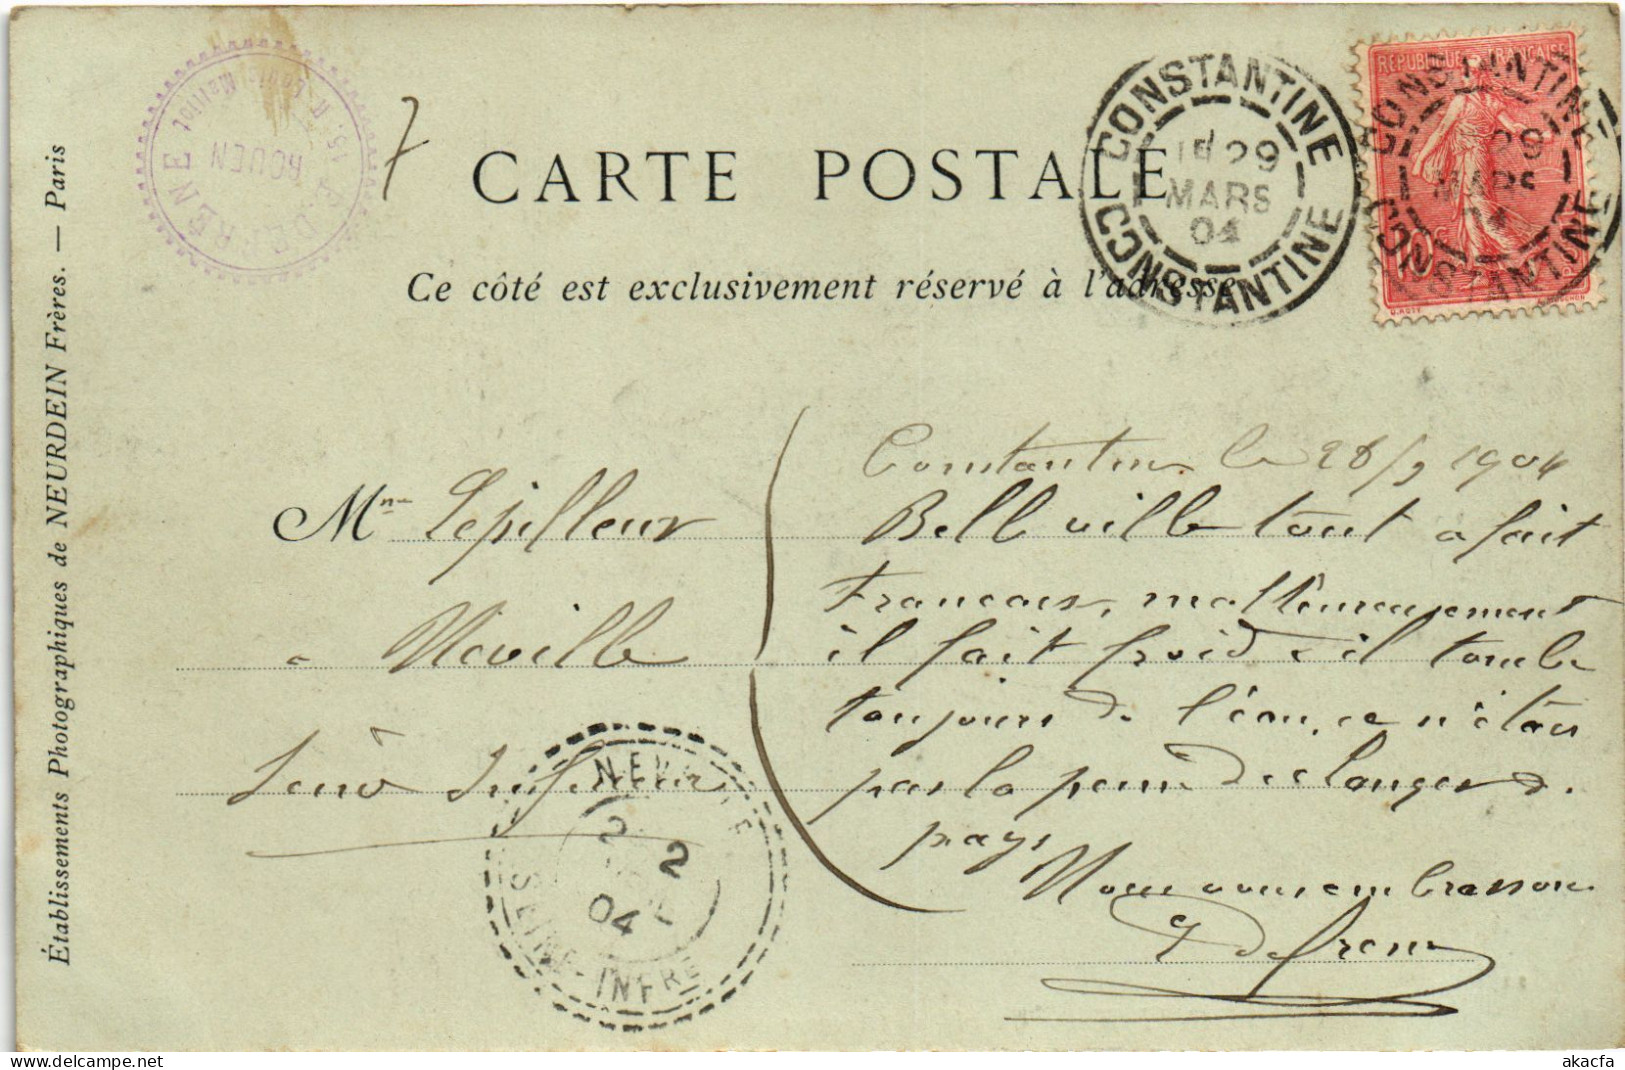 CARTE POSTALE
Ce côté est exclusivement réservé à l'adresse
Établissements Photographiques de NEURDEIN Frères. — Paris
E. DEFRENE
ROUEN
CONSTANTINE
29
MARS
04
CONSTANTINE
REPUBLIQUE FRANÇAISE
10c
CONSTANTINE
29
MARS
04
CONSTANTINE
Mme Lepilleur
a Néville
Seine Inferieure
2
04
SEINE-INFRE
Constantine le 28/3 1904
Belle ville tout a fait
Francaise, malheureusement
il fait froid et il tombe
toujours de l'eau, ce n'étais
pas la peine de changer de
pays
Nous vous embrassons
Defrene
akacfa